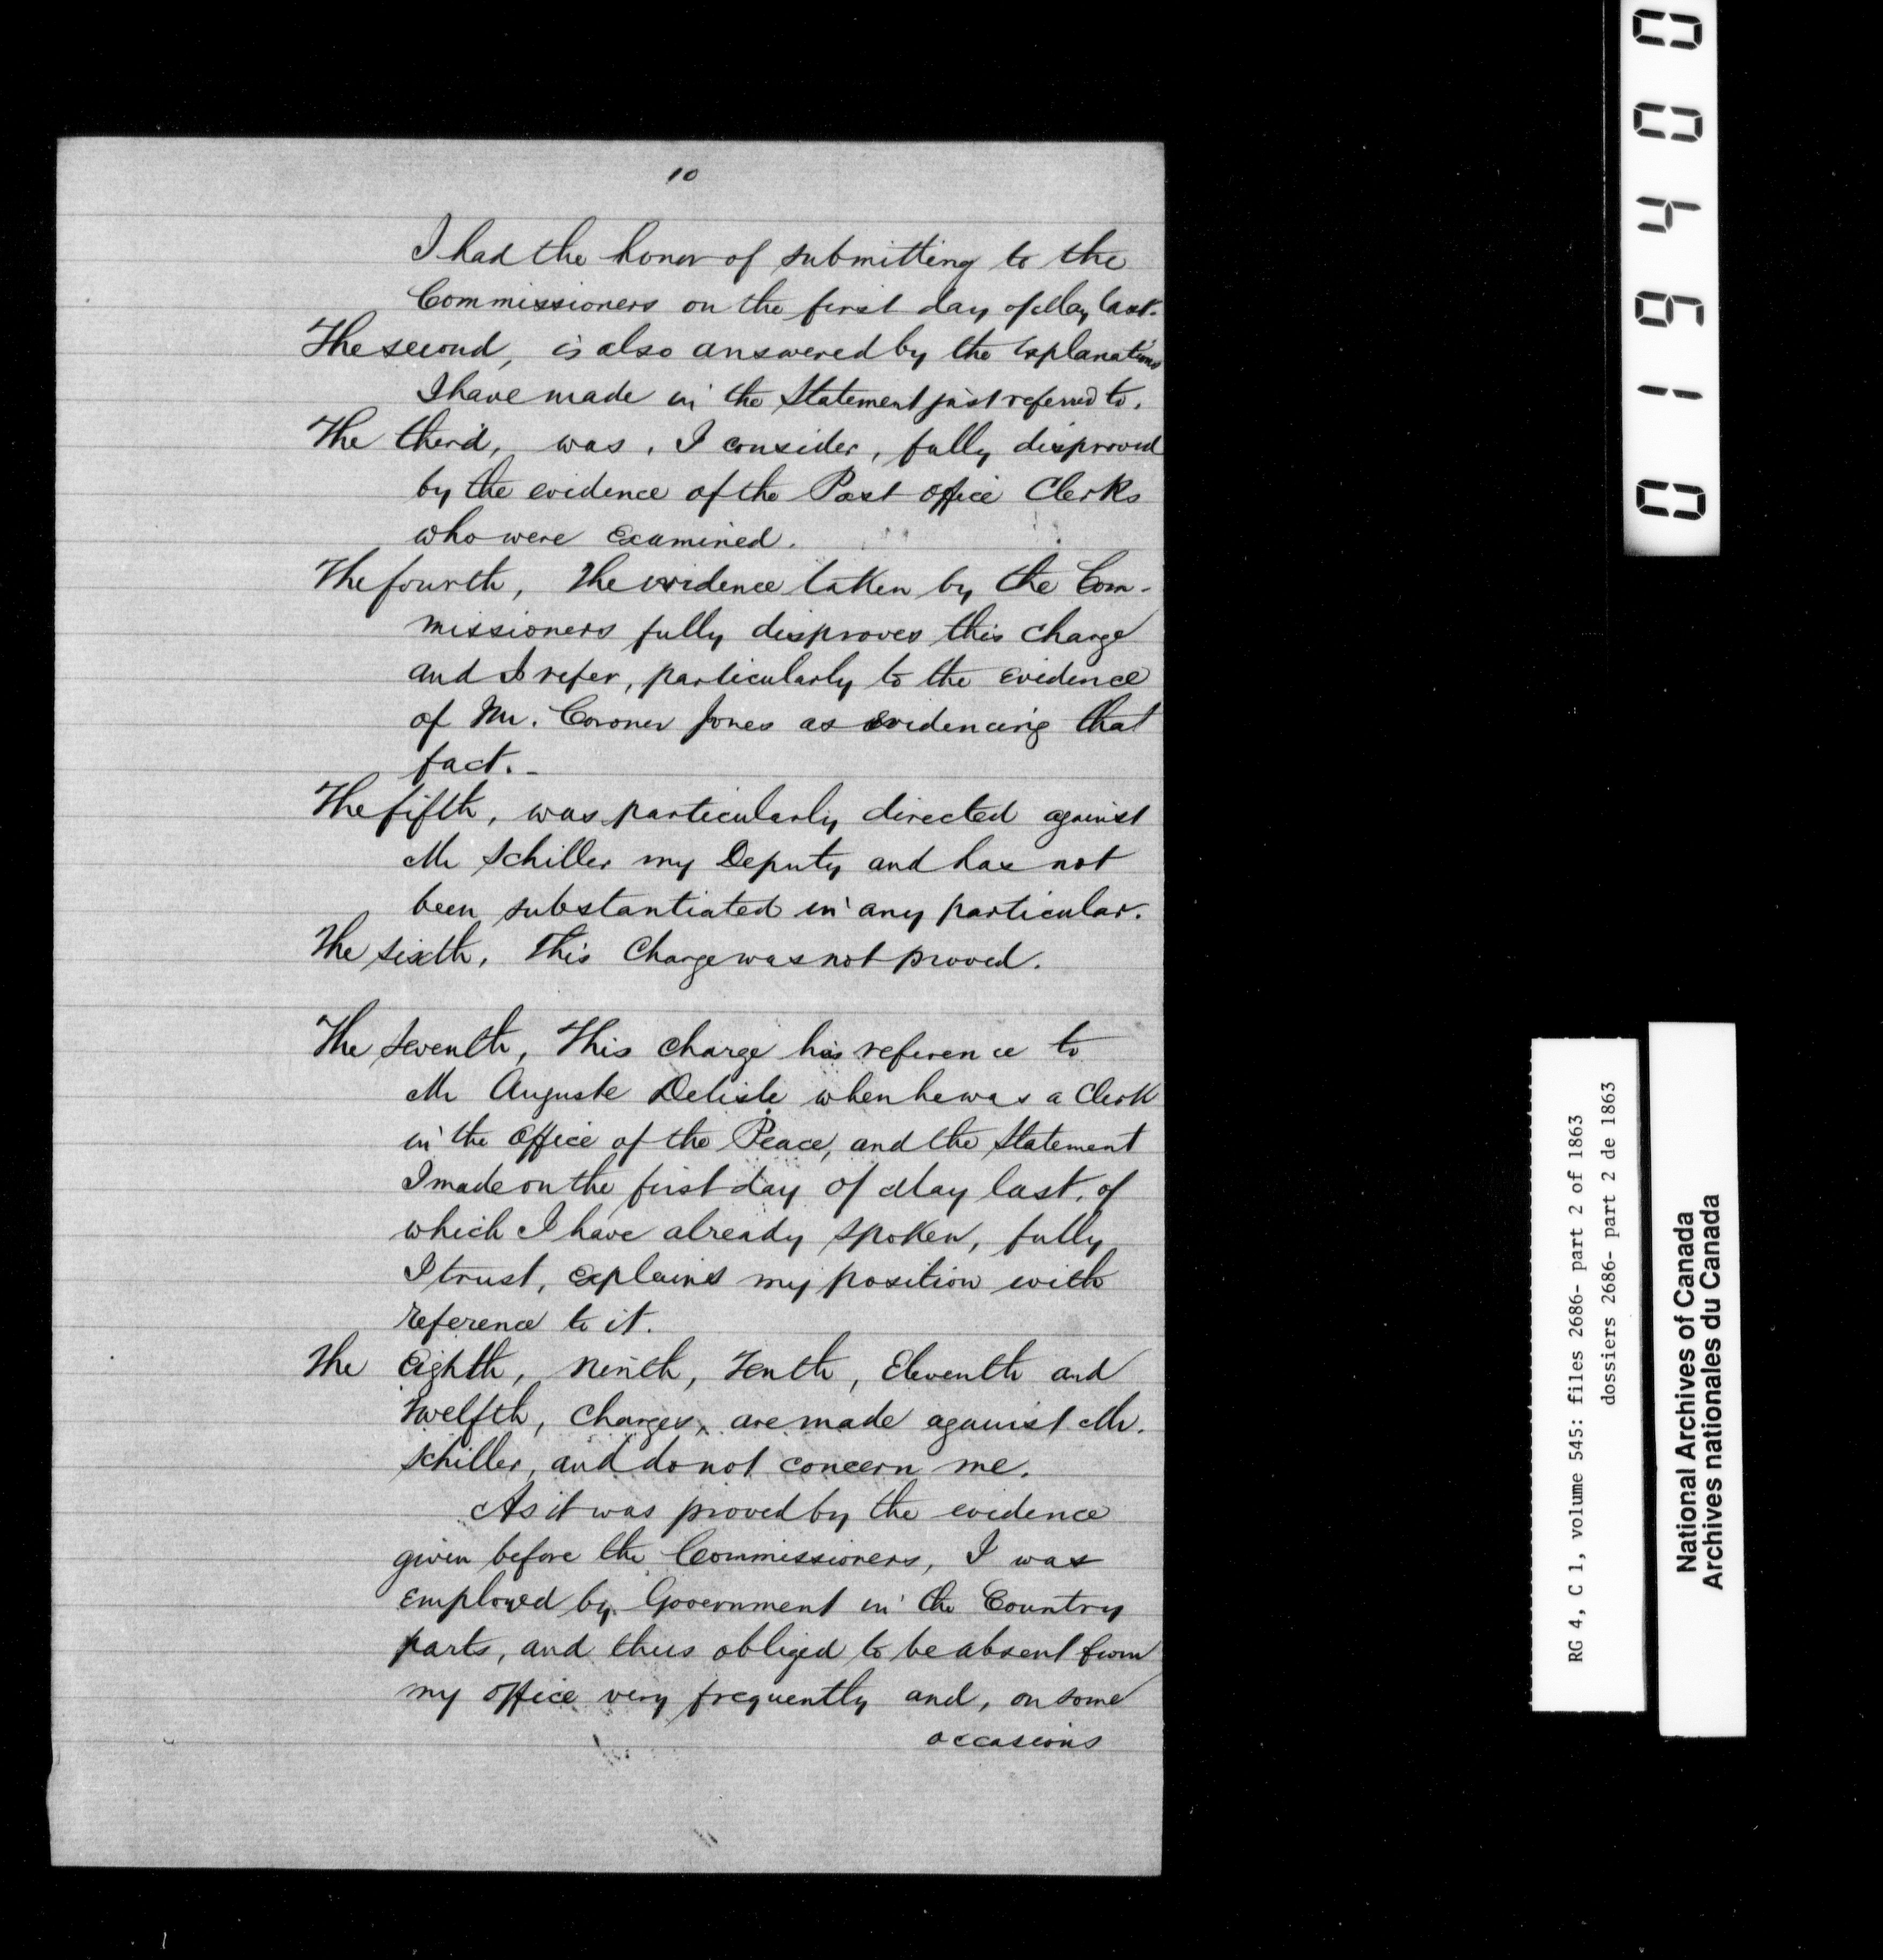 10
I had the honor of submitting to the
Commissioners on the first day of May last.
The second, is also answered by the Explanations
I have made in the Statement just referred to.
The third, was, I consider, fully disproved
by the evidence of the Post office Clerks
who were Examined.
The fourth, The evidence taken by the Com-
missioners fully disproves this charge
and I refer, particularly to the evidence
of Mr. Coroner Jones as evidencing that
fact. -
The fifth, was particularly directed against
Mr Schiller my Deputy and has not
been substantiated in any particular.
The sixth, This Charge was not proved.
The Seventh, This charge has reference to
Mr Auguste Delisle when he was a Clerk
in the Office of the Peace, and the Statement
I made on the first day of May last, of
which I have already spoken, fully
I trust, explains my position with
reference to it.
The Eighth, Ninth, Tenth, Eleventh and
Twelfth, Charges, are made against Mr.
Schiller, and do not concern me.
As it was proved by the evidence
given before the Commissioners, I was
Employed by Government in the Country
parts, and thus obliged to be absent from
my office very frequently and, on some
occasions
01940
RG 4, C 1, volume 545: files 2686- part 2 of 1863
dossiers 2686- part 2 de 1863
National Archives of Canada
Archives nationales du Canada